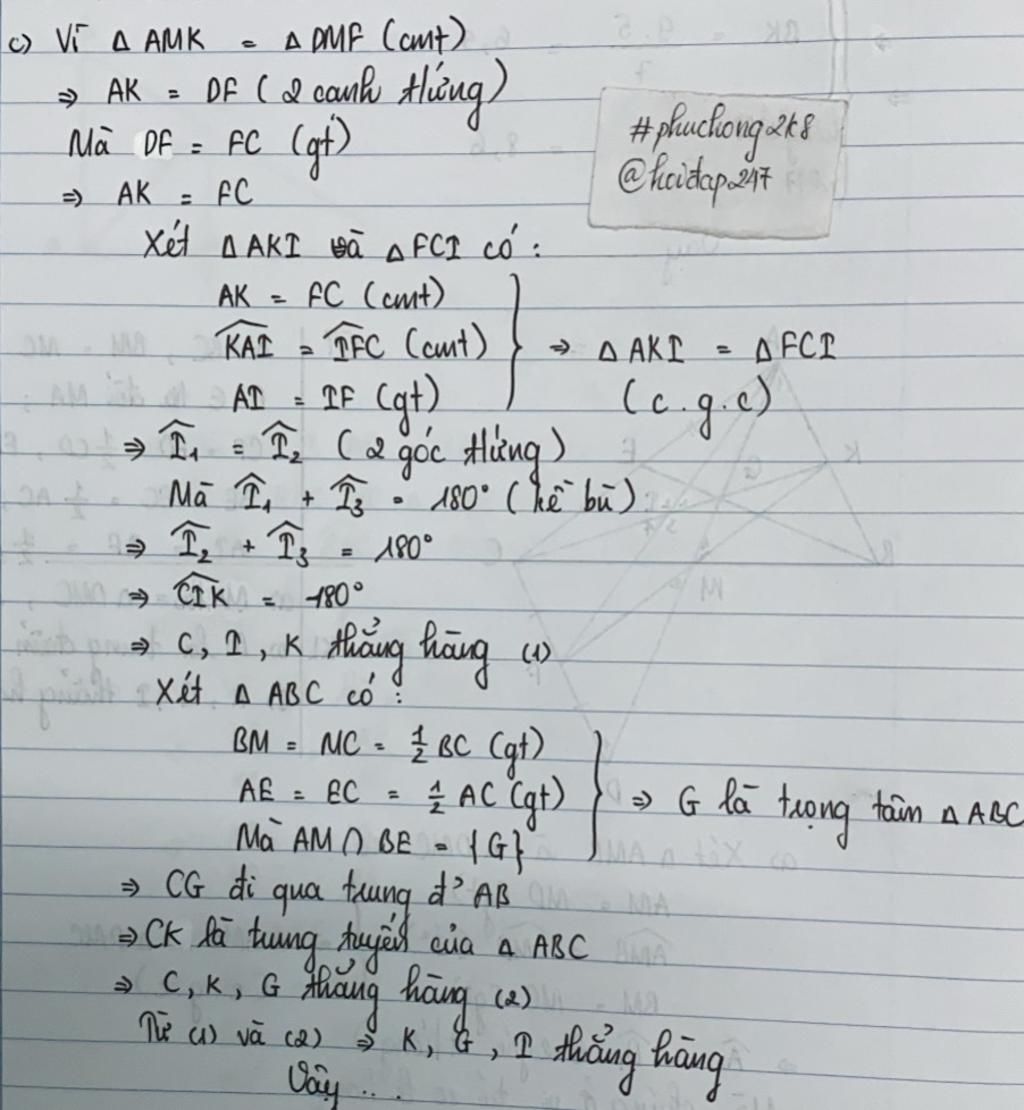 c) Vì Δ AMK = Δ DMF (cmt)
⇒ AK = DF ( 2 cạnh tứng)
Mà DF = FC (gt)
⇒ AK = FC
#phuchong2k8
@hoidap247
Xét Δ AKI và Δ FCI có :
AK = FC (cmt)
KAI = IFC (cmt)
AI = IF (gt)
⇒ Δ AKI = Δ FCI
(c.g.c)
⇒ I₁ = I₂ ( 2 góc tứng)
Mà I₁ + I₃ = 180° ( kề bù)
⇒ I₂ + I₃ = 180°
⇒ CIK = 180°
⇒ C, I, K thẳng hàng (1)
Xét Δ ABC có :
BM = MC = ½ BC (gt)
AE = EC = ½ AC (gt)
Mà AM ∩ BE = {G}
⇒ G là trọng tâm Δ ABC
⇒ CG đi qua trung đ' AB
⇒ CK là trung tuyến của Δ ABC
⇒ C, K, G thẳng hàng (2)
Từ (1) và (2) ⇒ K, G, I thẳng hàng
Vậy ...